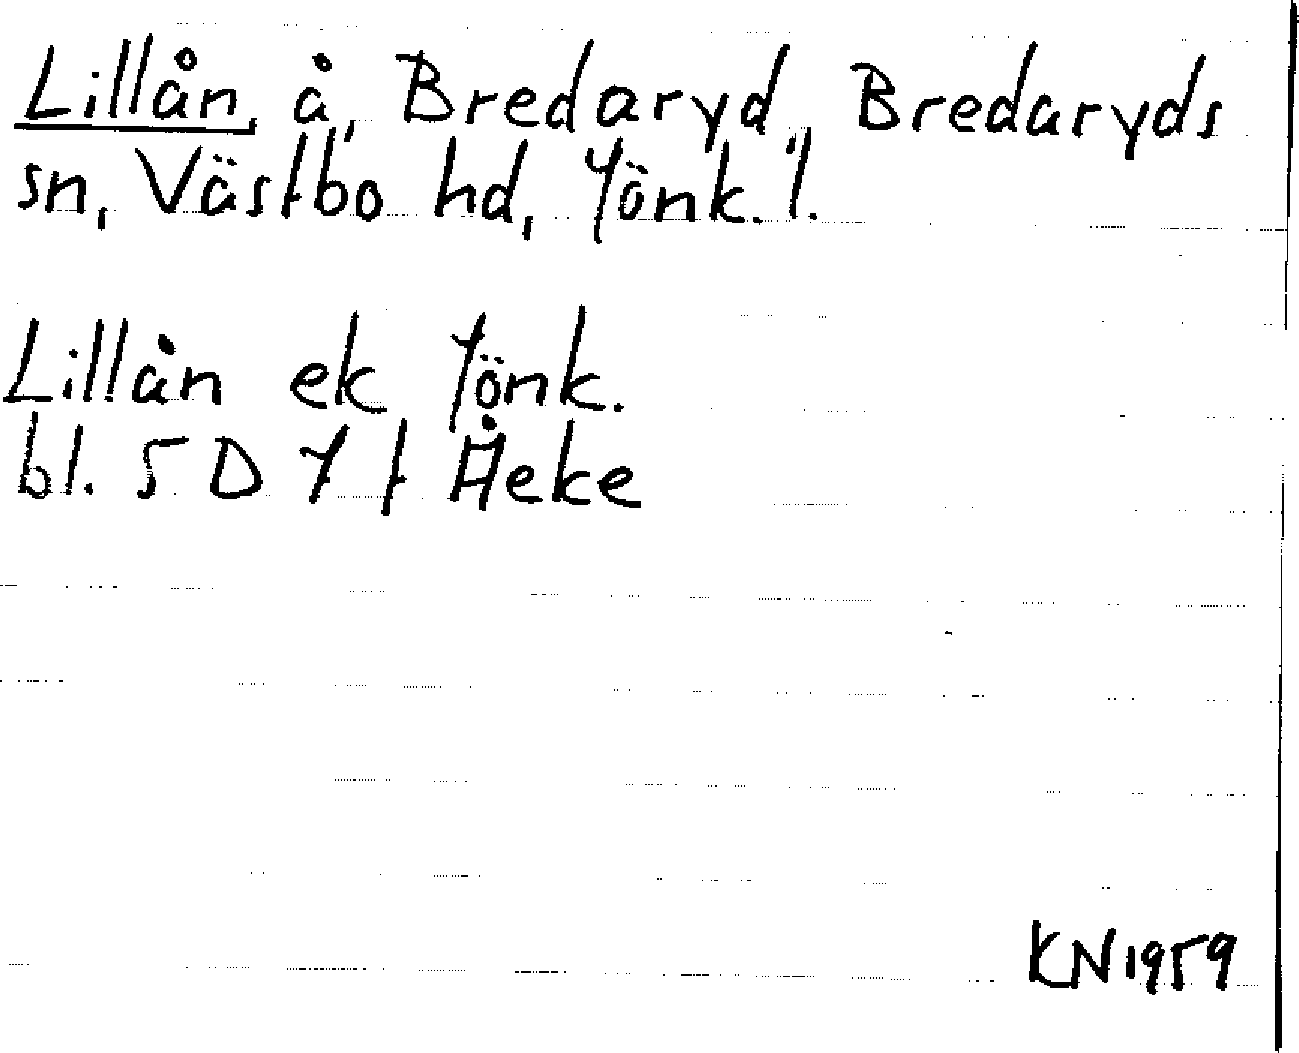 Lillån, å, Bredaryd, Bredaryds
sn, Västbo hd, Jönk. l.
Lillån ek Jönk.
bl. 5 D 7 f Åeke
KN 1959